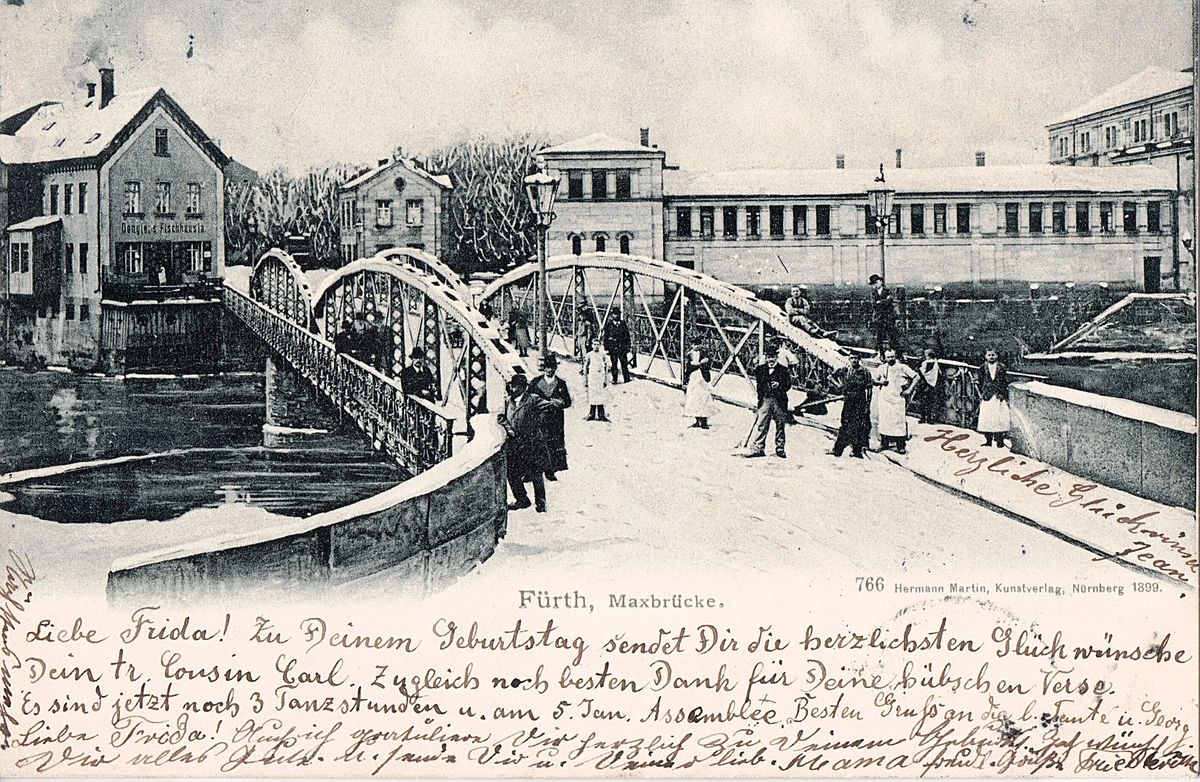 Herzliche Glückwünsche
Jean
Fürth, Maxbrücke.
766 Hermann Martin, Kunstverlag, Nürnberg 1899.
Liebe Frida! Zu Deinem Geburtstag sendet Dir die herzlichsten Glückwünsche
Dein tr. Cousin Carl. Zugleich noch besten Dank für Deine hübschen Verse.
Es sind jetzt noch 3 Tanzstunden u. am 5. Jan. Assemblée. Besten Gruß an die l. Tante u. Georg
Liebe Frida! Auch ich gratuliere Dir herzlich zu Deinem
Dir alles Gute. u. sende Dir u. Deiner lieb. Mama